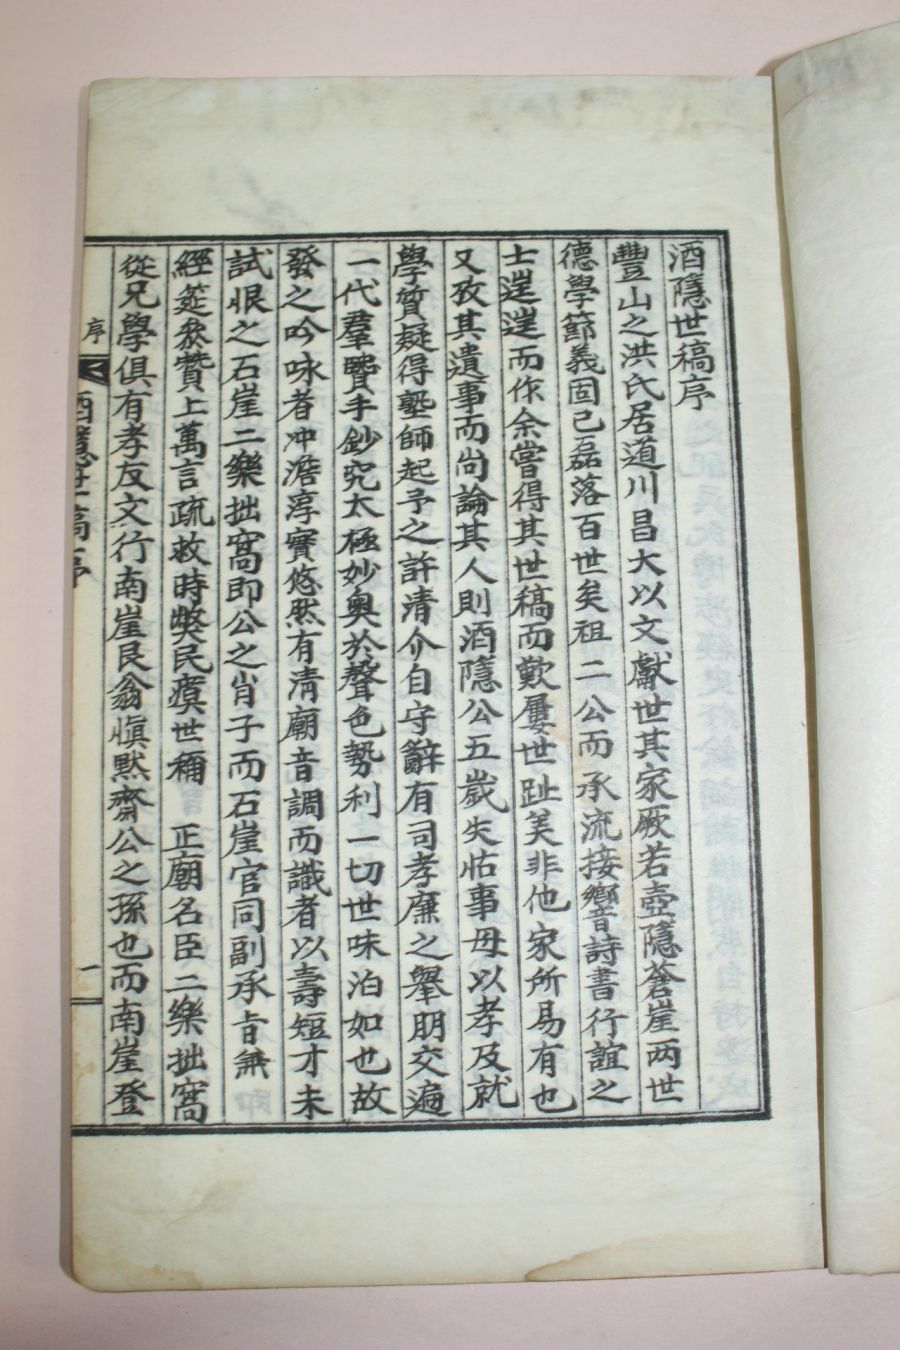 酒隱世稿序
豐山之洪氏居道川昌大以文獻世其家厥若壺隱蒼崖两世
德學節義固已磊落百世矣祖二公而承流接響詩書行誼之
士逞逞而作余嘗得其世稿而歎屢世趾美非他家所易有也
又攷其遺事而尚論其人則酒隱公五歲失怙事母以孝及就
學質疑得塾師起予之許清介自守辭有司孝廉之擧朋交遍
一代羣賢手鈔究太極妙奧於聲色勢利一切世味泊如也故
發之吟咏者冲澹淳實悠然有清廟音調而識者以壽短才未
試恨之石崖二樂拙窩即公之肖子而石崖官同副承旨兼
經筵叅贊上萬言疏救時弊民瘼世稱 正廟名臣二樂拙窩
從兄學俱有孝友文行南崖艮翁愼默齋公之孫也而南崖登
序
酒隱世稿序
一